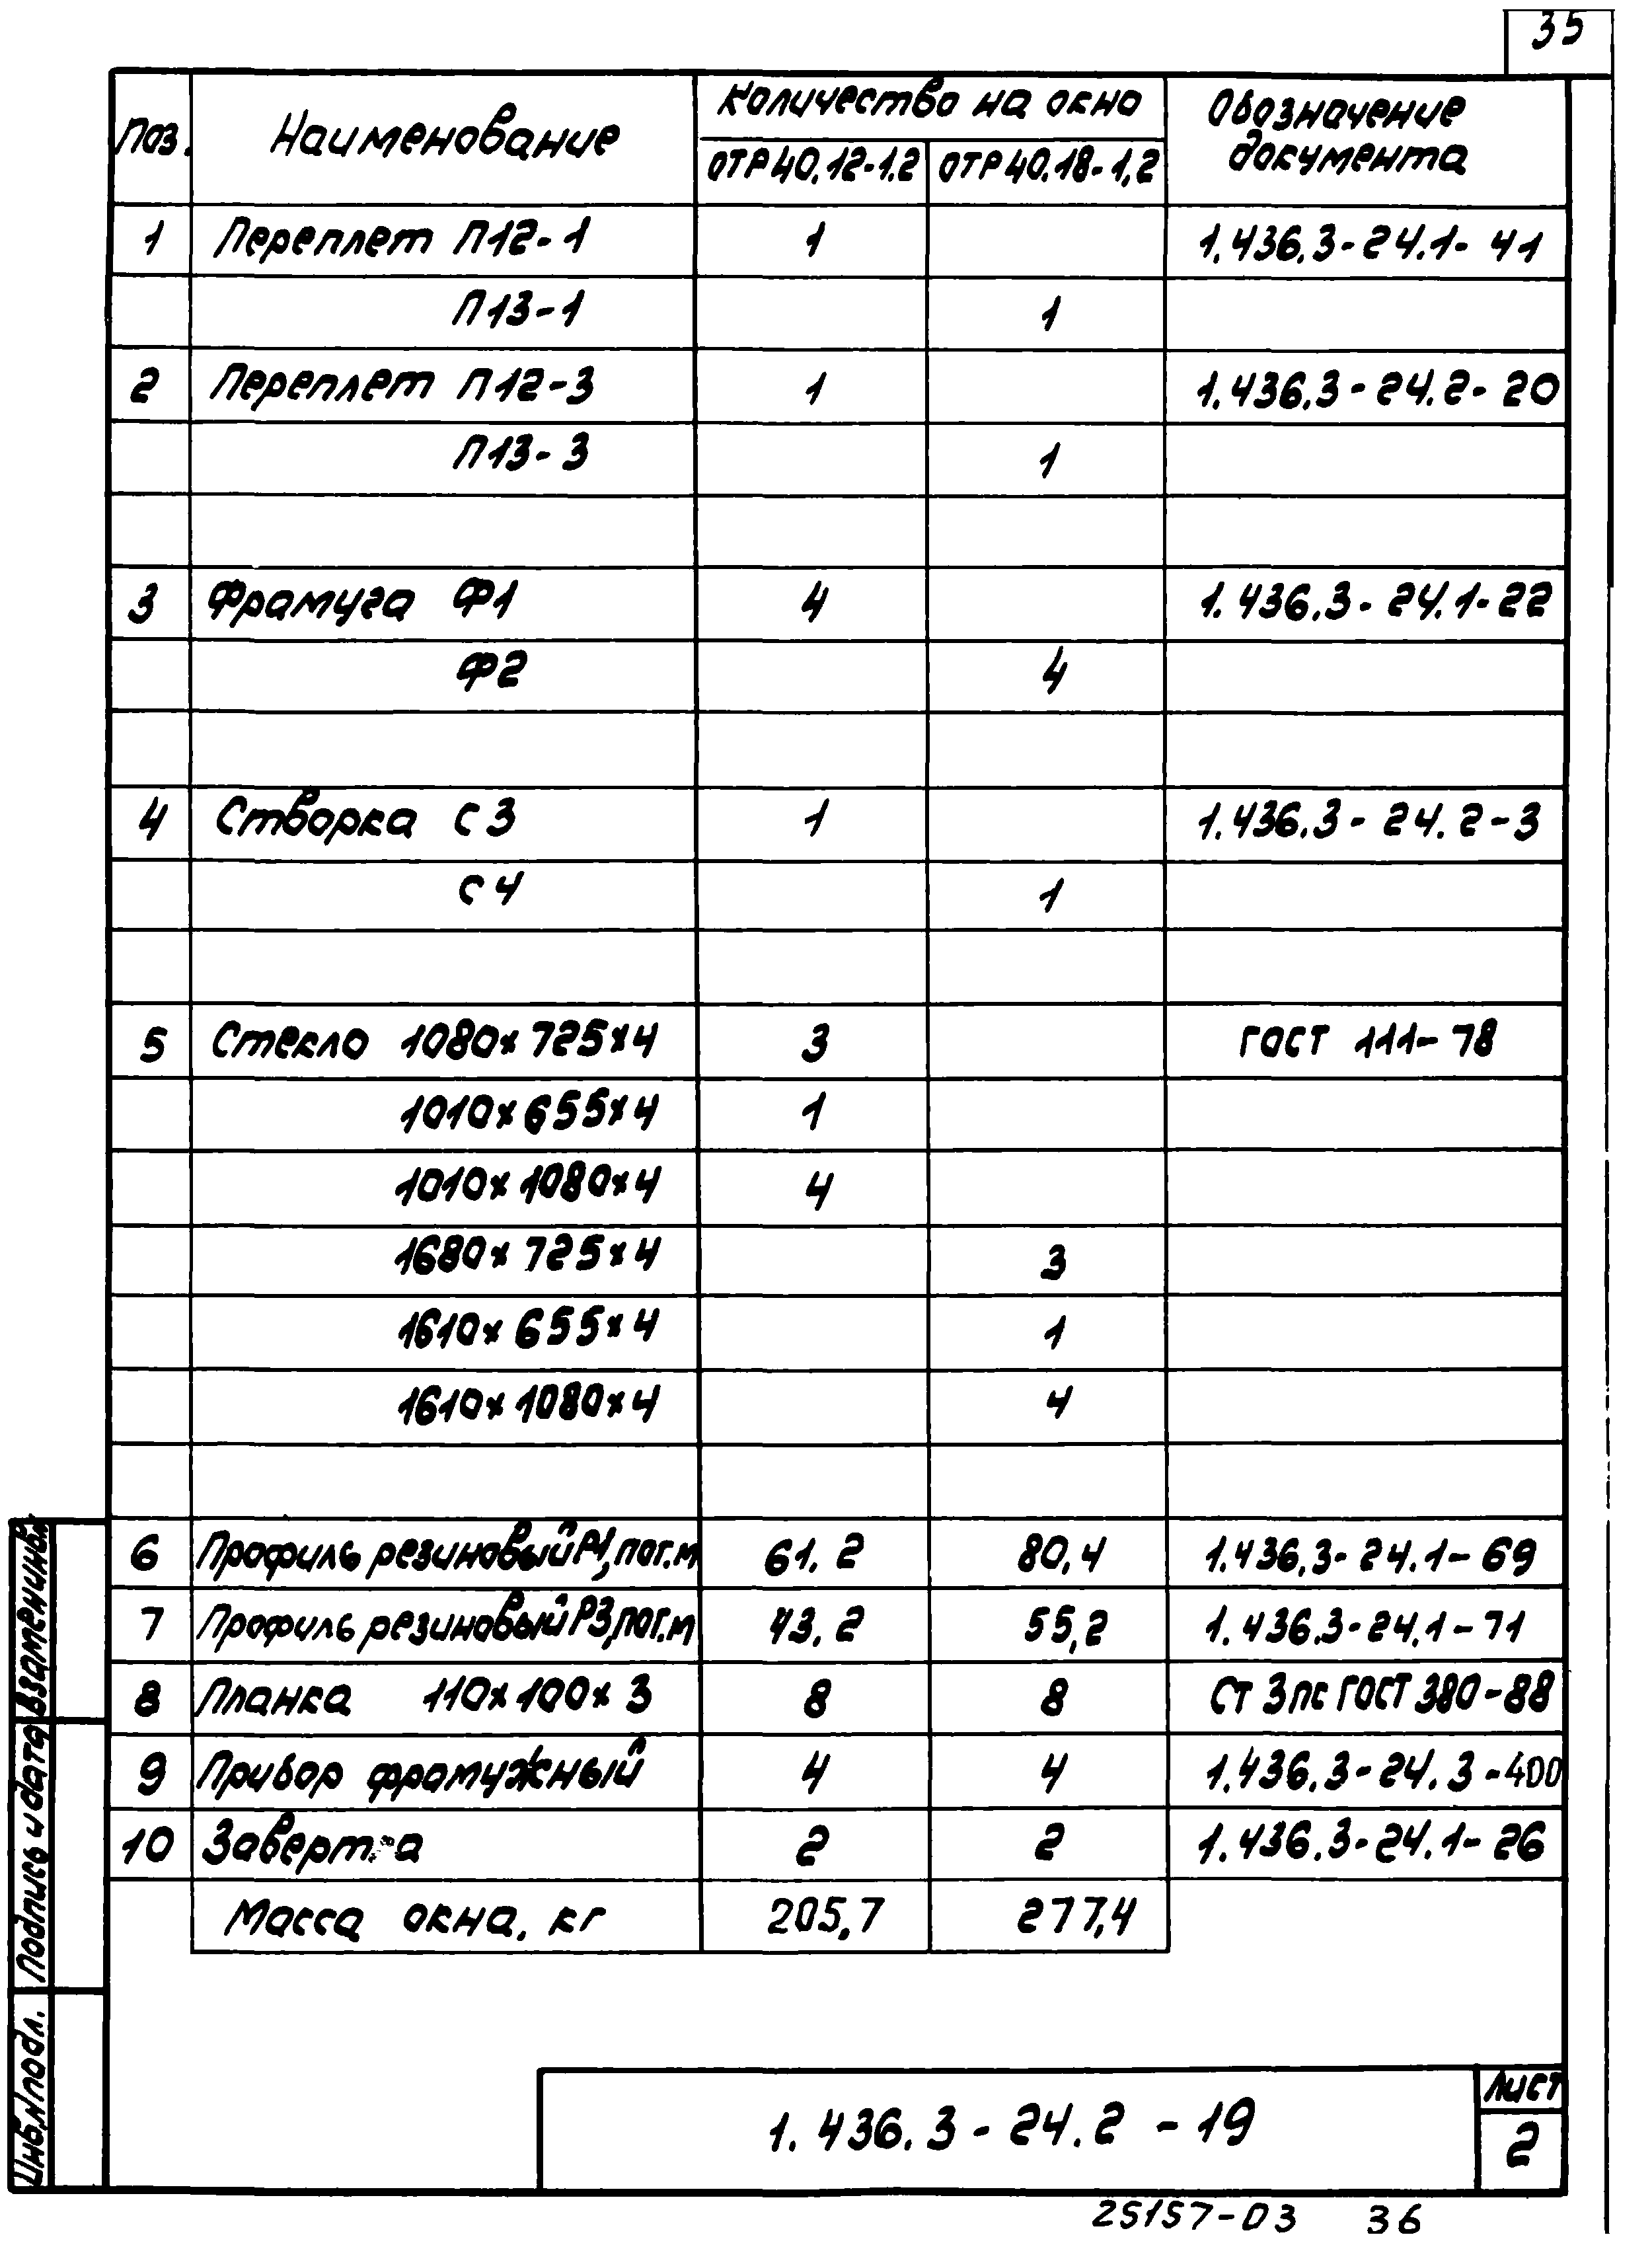 35
Поз. Наименование Количество на окно Обозначение документа
ОТР40.12-1.2 ОТР40.18-1,2
1 Переплет П12-1 1 1.436.3-24.1-41
П13-1 1
2 Переплет П12-3 1 1.436.3-24.2-20
П13-3 1
3 Фрамуга Ф1 4 1.436.3-24.1-22
Ф2 4
4 Створка С3 1 1.436.3-24.2-3
С4 1
5 Стекло 1080х725х4 3 ГОСТ 111-78
1010х655х4 1
1010х1080х4 4
1680х725х4 3
1610х655х4 1
1610х1080х4 4
6 Профиль резиновый Р1, пог.м 61.2 80,4 1.436.3-24.1-69
7 Профиль резиновый Р3, пог.м 43.2 55,2 1.436.3-24.1-71
8 Планка 110х100х3 8 8 Ст 3пс ГОСТ 380-88
9 Прибор фрамужный 4 4 1.436.3-24.3-400
10 Завертка 2 2 1.436.3-24.1-26
Масса окна, кг 205,7 277,4
Взамен инв.№
Подпись и дата
Инв.№ подл.
1.436.3-24.2-19
Лист
2
25157-03 36